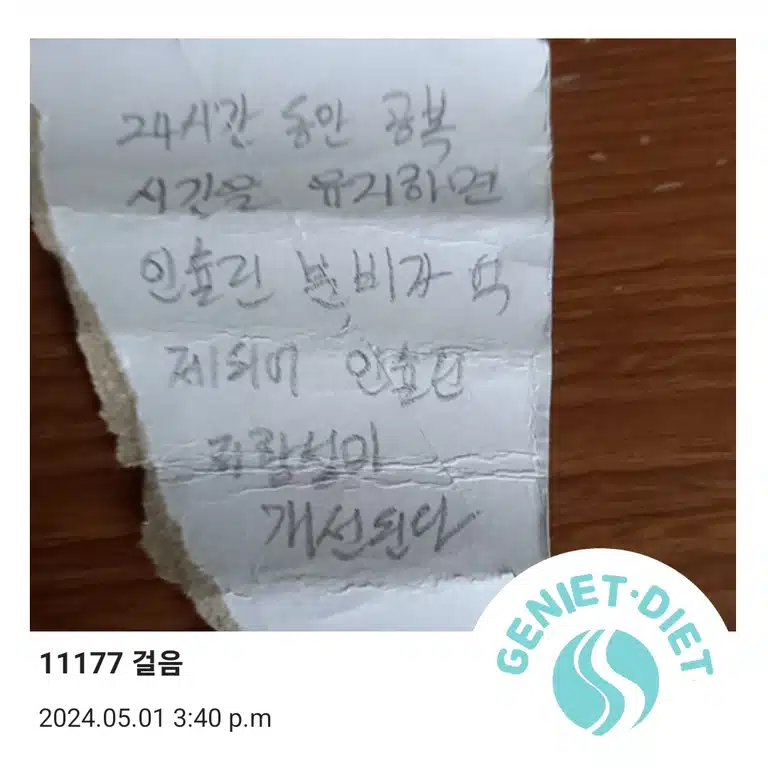 24시간 동안 공복
시간을 유지하면
인슐린 분비가 억
제되어 인슐린
저항성이
개선된다
11177 걸음
2024.05.01 3:40 p.m
GENIET·DIET